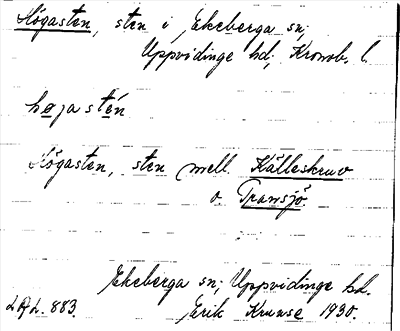 Högasten, sten i Ekeberga sn,
Uppvidinge hd, Kronob. l.
høgastén
Högasten, sten mell. Kålleskruv
o. Transjö.
Ekeberga sn, Uppvidinge hd.
883. Erik Krunse 1930.